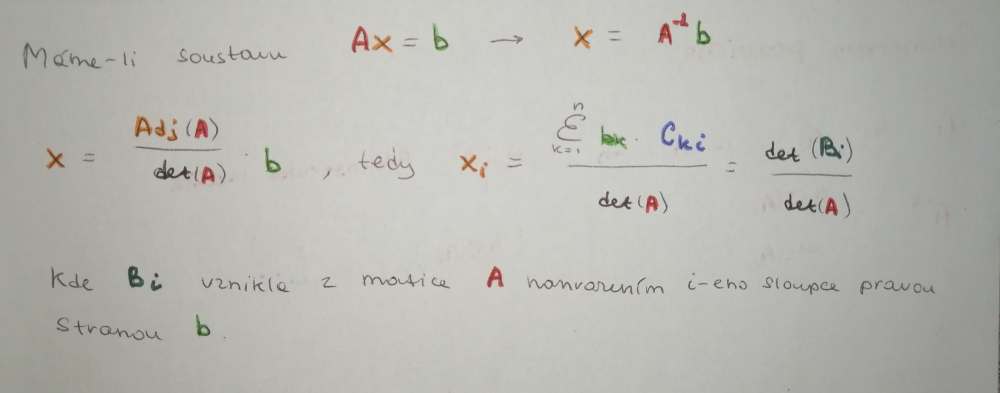 Máme-li soustavu Ax = b → x = A⁻¹b
x = Adj(A) / det(A) · b , tedy xᵢ = Σₖ₌₁ⁿ bₖ · Cₖᵢ / det(A) = det(Bᵢ) / det(A)
Kde Bi vznikla z matice A i-eho sloupce pravou
Stranou b.